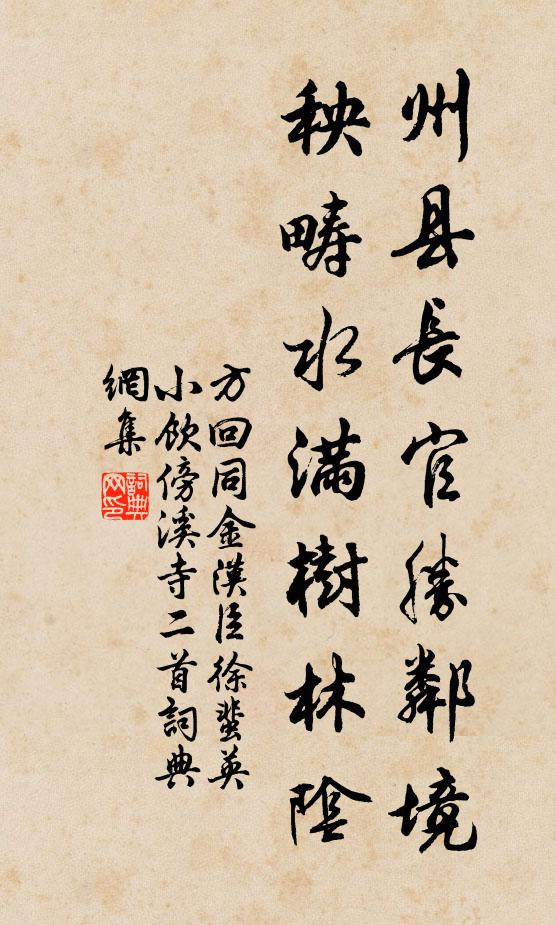 州县長官勝鄰境
秧疇水满樹林陰
方回同金漢臣徐蜚英
小飲傍溪寺二首詞典
網集
詞典網印